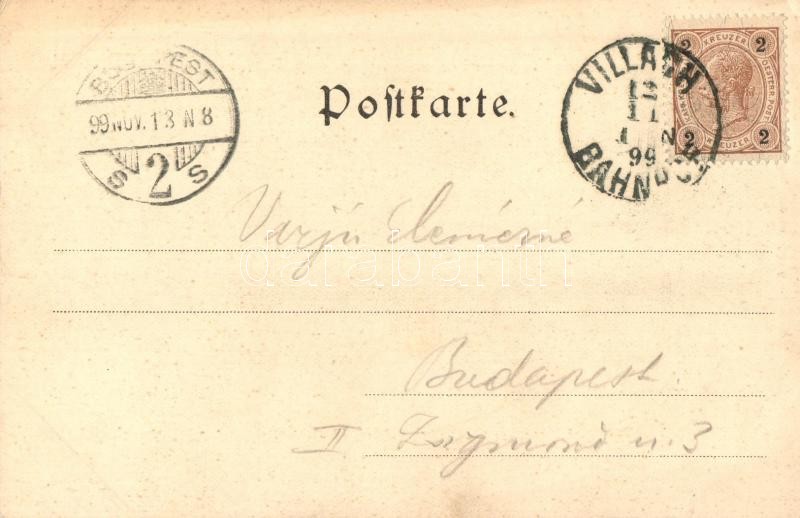 BUDAPEST
99 NOV. 13 N 8
S 2 S
Postkarte.
VILLACH
12
11
99
BAHNHOF
2 KREUZER 2
2 KREUZER 2
Varjú Elemérné
darabanth
Budapest.
II Zsigmond u. 3